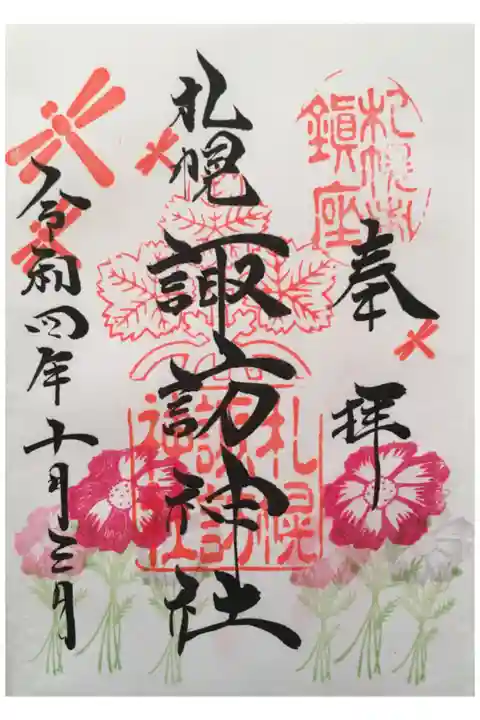 札幌
鎮座
奉拝
札幌
諏訪神社
札幌
諏訪
神社
令和四年十月三日